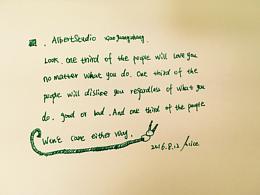 . AlbertStudio xiaoguangshang
Look one third of the people will love you
no matter what you do. One third of the
people will dislike you regardless of what you
do. good or bad. And one third of the people
Won't care either way.
2016.8.12 Alice